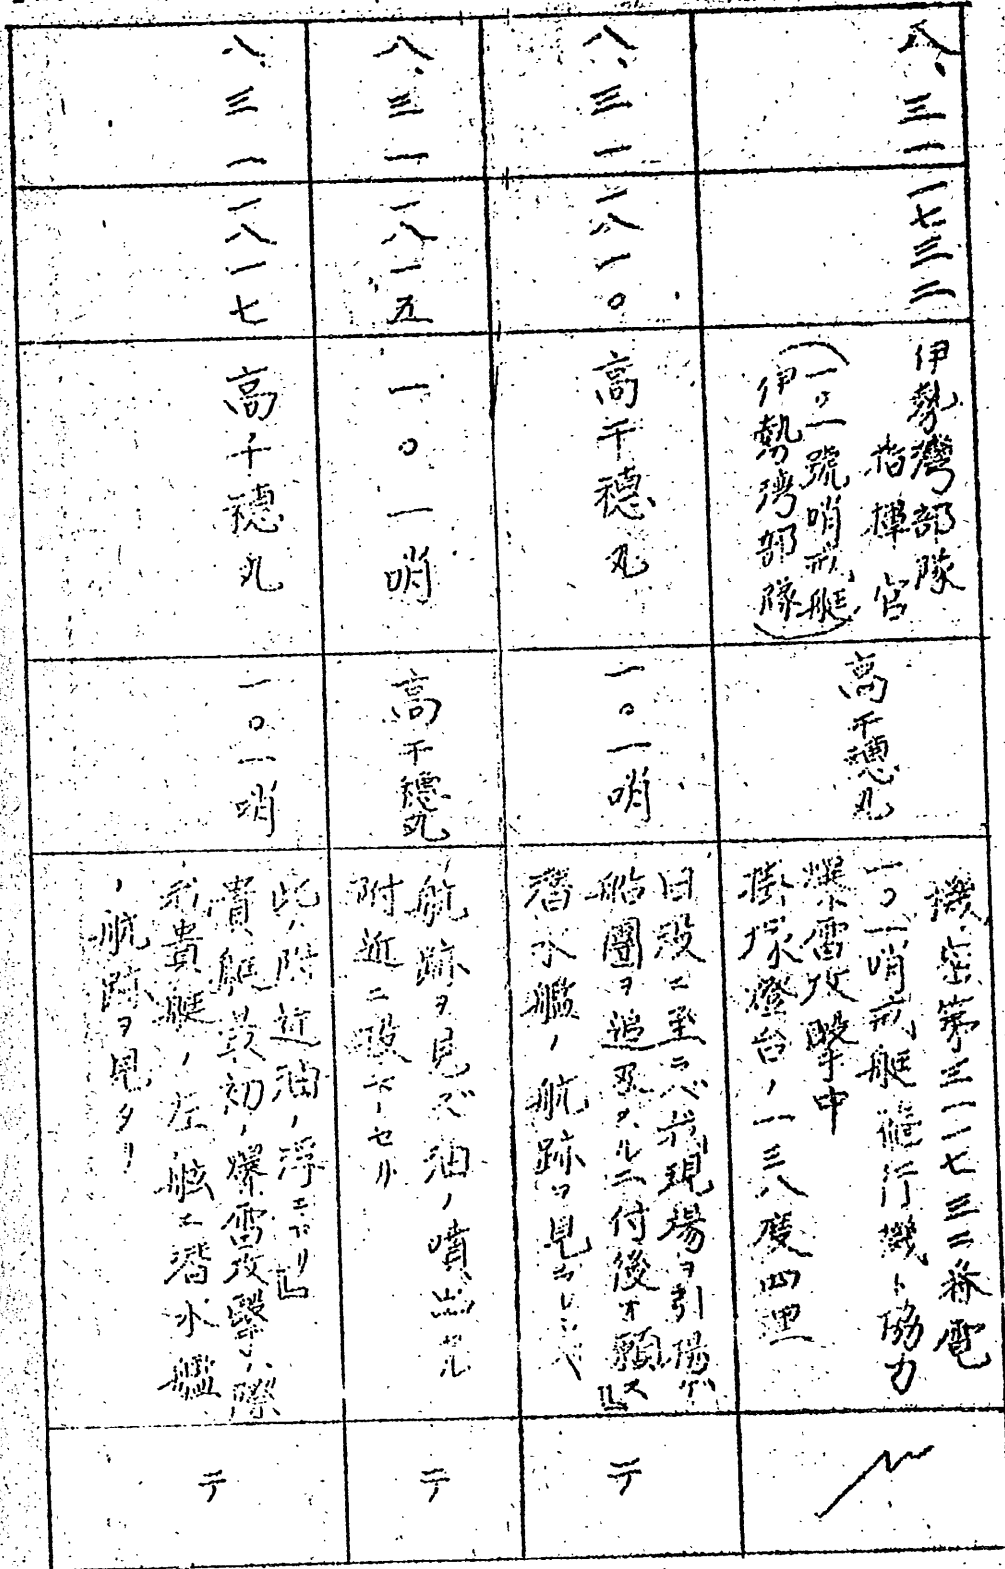 八、三一
一七三二
伊勢灣部隊
指揮官
(一〇一號哨戒艇
伊勢湾部隊)
高千穂丸
機密第三一一七三二番電
一〇一哨戒艇 飛行機ト協力
爆雷攻撃中
掛塚燈台ノ一三八度四浬
八、三一
一八一〇
高千穂丸
一〇一哨
日没ニ至ラバ我現場ヲ引揚ゲ
船團ヲ追及スルニ付後オ願ス』
潜水艦ノ航跡ヲ見
テ
八、三一
一八一五
一〇一哨
高千穂丸
航跡ヲ見ズ油ノ噴出
附近ニ投下セリ
テ
八、三一
一八一七
高千穂丸
一〇一哨
此ノ附近油ノ浮
貴艇最初ノ爆雷攻撃ノ際
貴艇ノ左舷ニ潜水艦
ノ航跡ヲ見タリ
テ